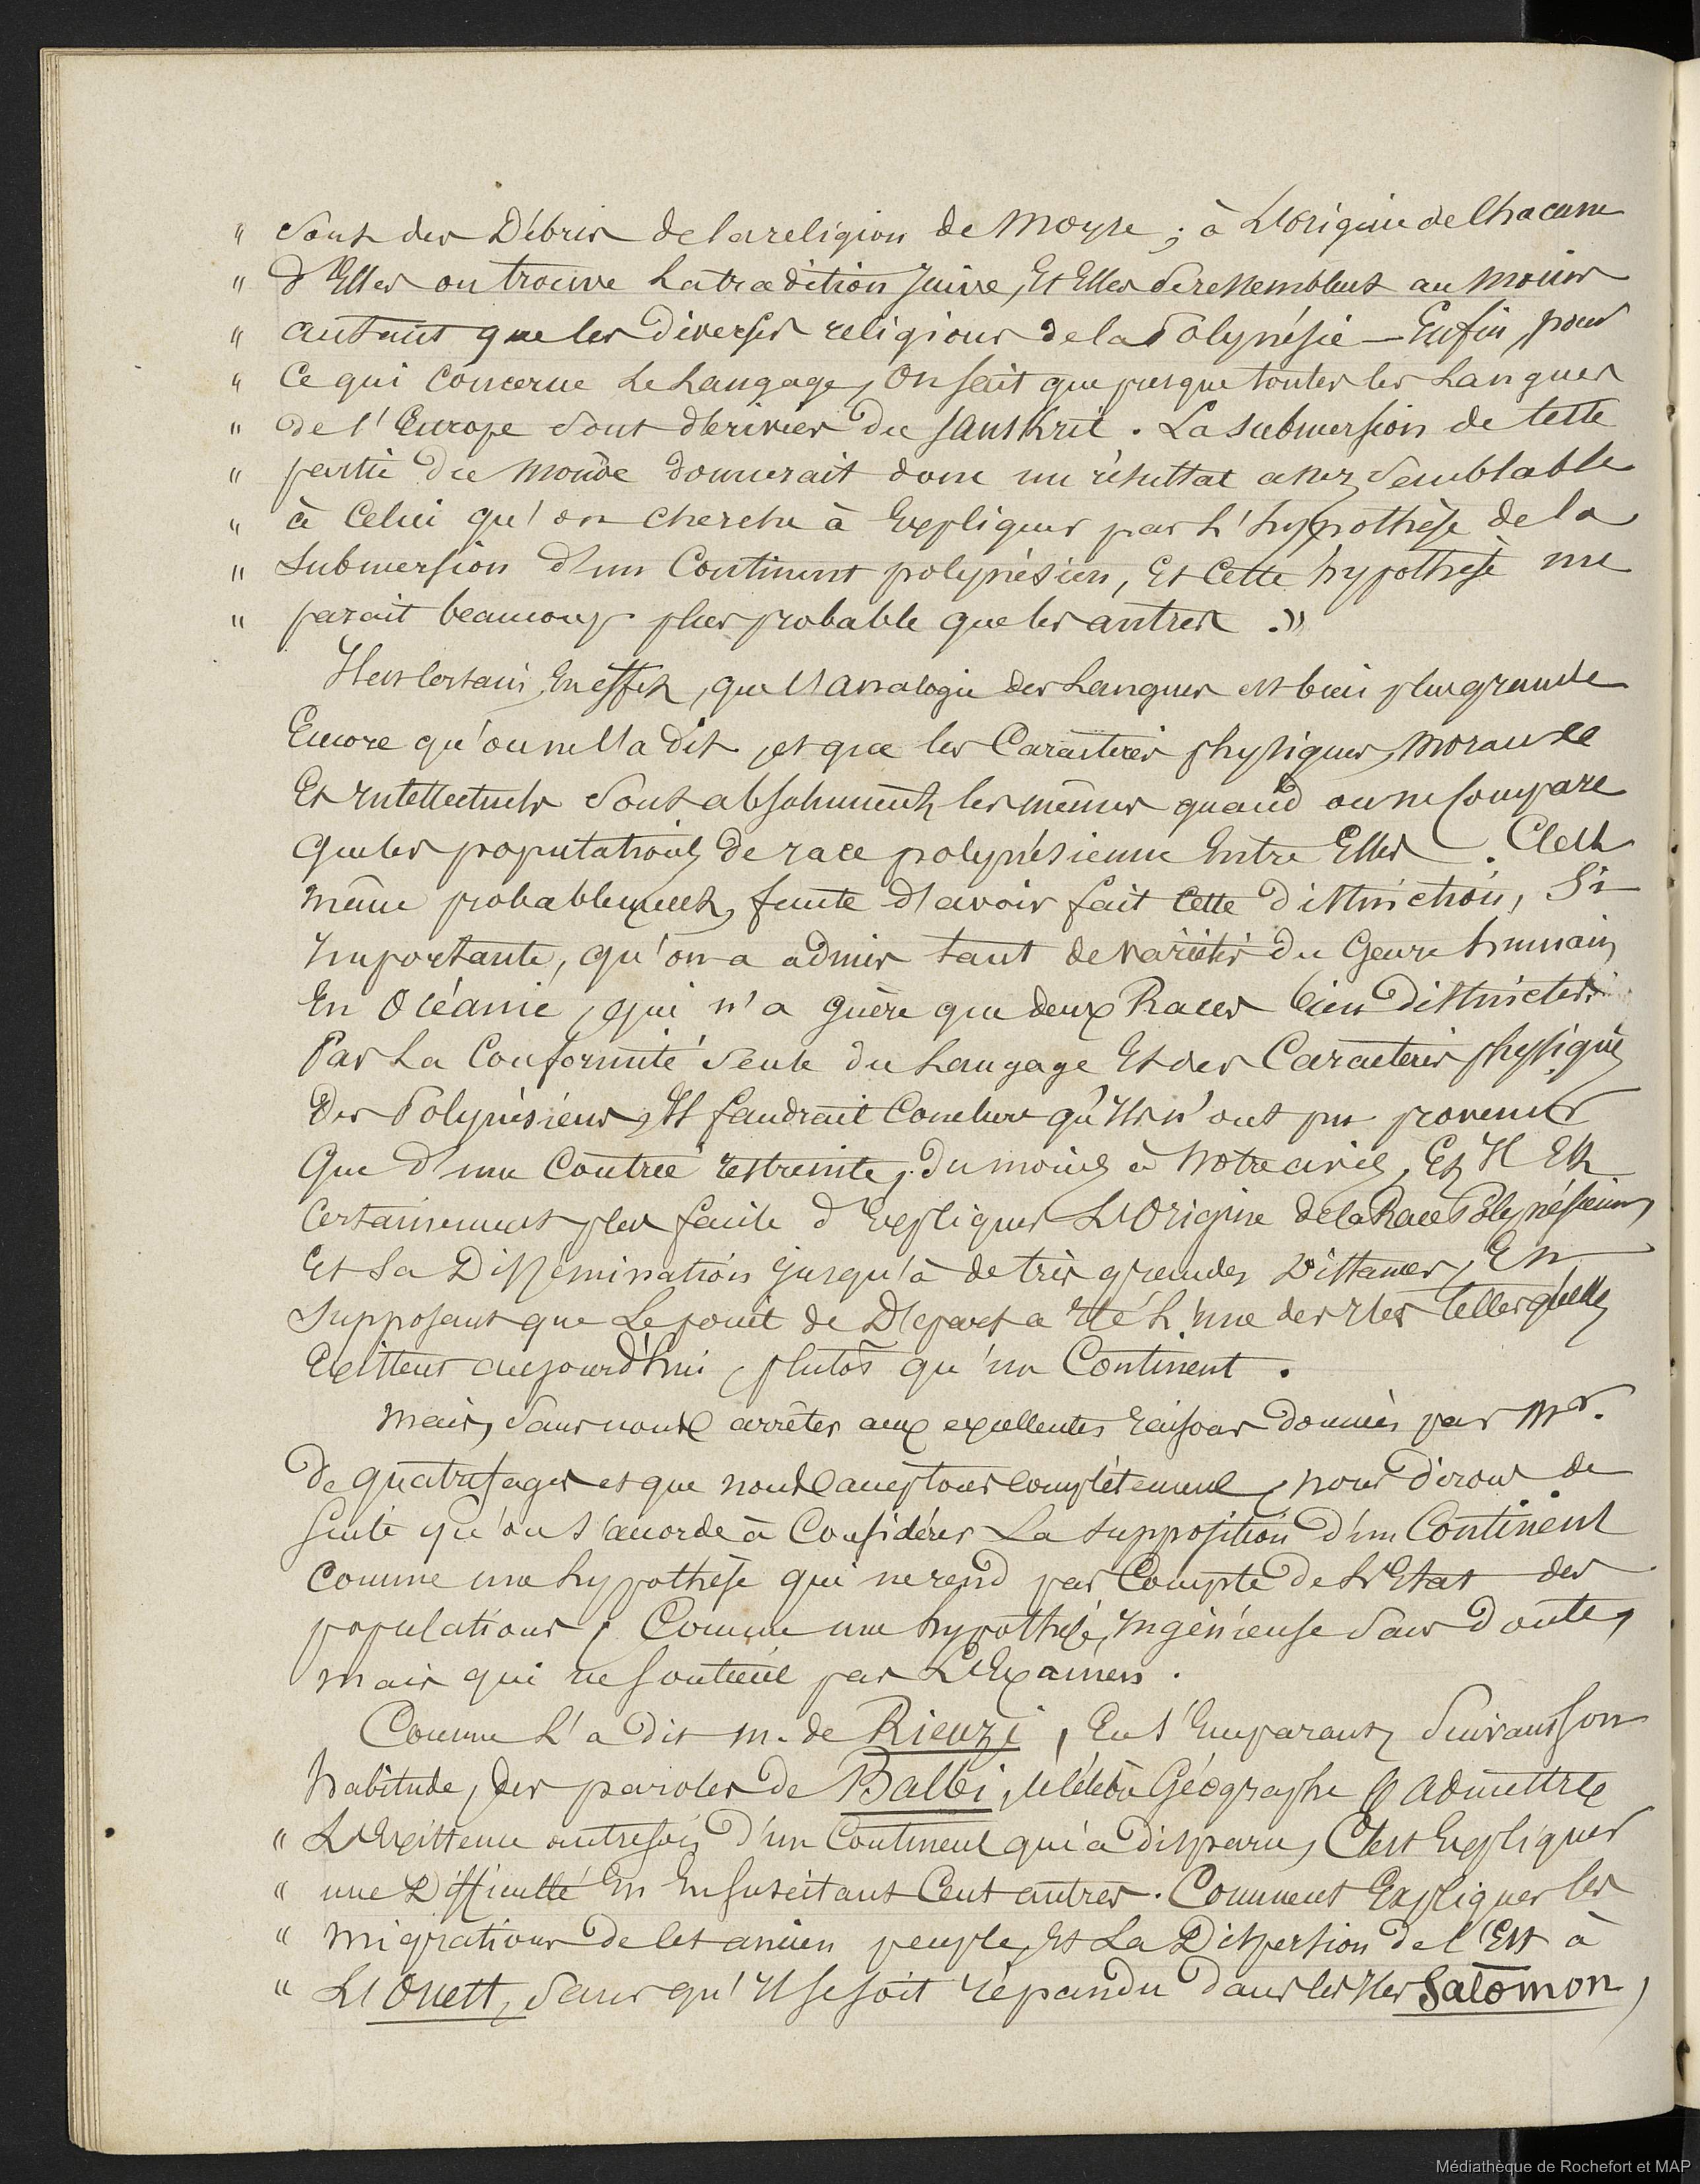 " sont des Débris de la religion de Moyse ; à L'origine de Chacune
" d'Elles on trouve La tradition Juive, Et Elles se ressemblent au moins
" autant que les diverses religions de la Polynésie — Enfin, pour
" Ce qui concerne Le Langage, On sait que presque toutes les Langues
" de l'Europe sont dérivées du Sanskrit. La submersion de cette
" partie du Monde donnerait donc un résultat assez semblable
" à Celui qu'on cherche à Expliquer par L'hypothèse de la
" Submersion d'un Continent polynésien, Et Cette hypothèse me
" parait beaucoup plus probable que les autres. »
Il est Certain, En effet, que L'analogie des Langues est bien plus grande
Encore qu'on ne L'a dit, et que les Caractères physiques, Moraux
Et Intellectuels sont absolument les mêmes quand on ne Compare
Que les populations de race polynésienne Entre Elles. C'est
même probablement, faute d'avoir fait cette distinction, Si
Importante, qu'on a admis tant de variétés du Genre humain
En Océanie, qui n'a guère que deux Races bien Distinctes.
Par La Conformité Seule du Langage Et des Caractères physiques
Des Polynésiens, Il faudrait Conclure qu'Ils n'ont pu provenir
Que d'une Contrée restreinte, du moins à Notre avis, Et Il Est
Certainement plus facile d'Expliquer L'Origine de la Race Polynésienne
Et Sa Dissémination jusqu'à de très grandes Distances, En
Supposant que Le point de Départ a été L'une des Iles telles qu'elles
Existent aujourd'hui, plutôt qu'un Continent.
Mais, Sans nous arrêter aux excellentes raisons données par Mr.
De Quatrefages et que nous acceptons complètement, nous dirons de
Suite qu'on s'accorde à Considérer La supposition d'un Continent
Comme une hypothèse qui ne rend pas Compte de L'Etat des
populations ; Comme une hypothèse, Ingénieuse Sans Doute,
mais qui ne soutient pas L'Examen.
Comme L'a dit M. de Rienzi, En s'Emparant, Suivant son
habitude, des paroles de Balbi, le célèbre Géographe « admettre
" L'Existence autrefois d'un Continent qui a disparu, C'est Expliquer
" une Difficulté En En suscitant Cent autres. Comment Expliquer les
" Migrations de cet ancien peuple, Et La Dispersion de l'Est à
" L'Ouest, Sans qu'Il se soit répandu dans les Iles Salomon,
Médiathèque de Rochefort et MAP